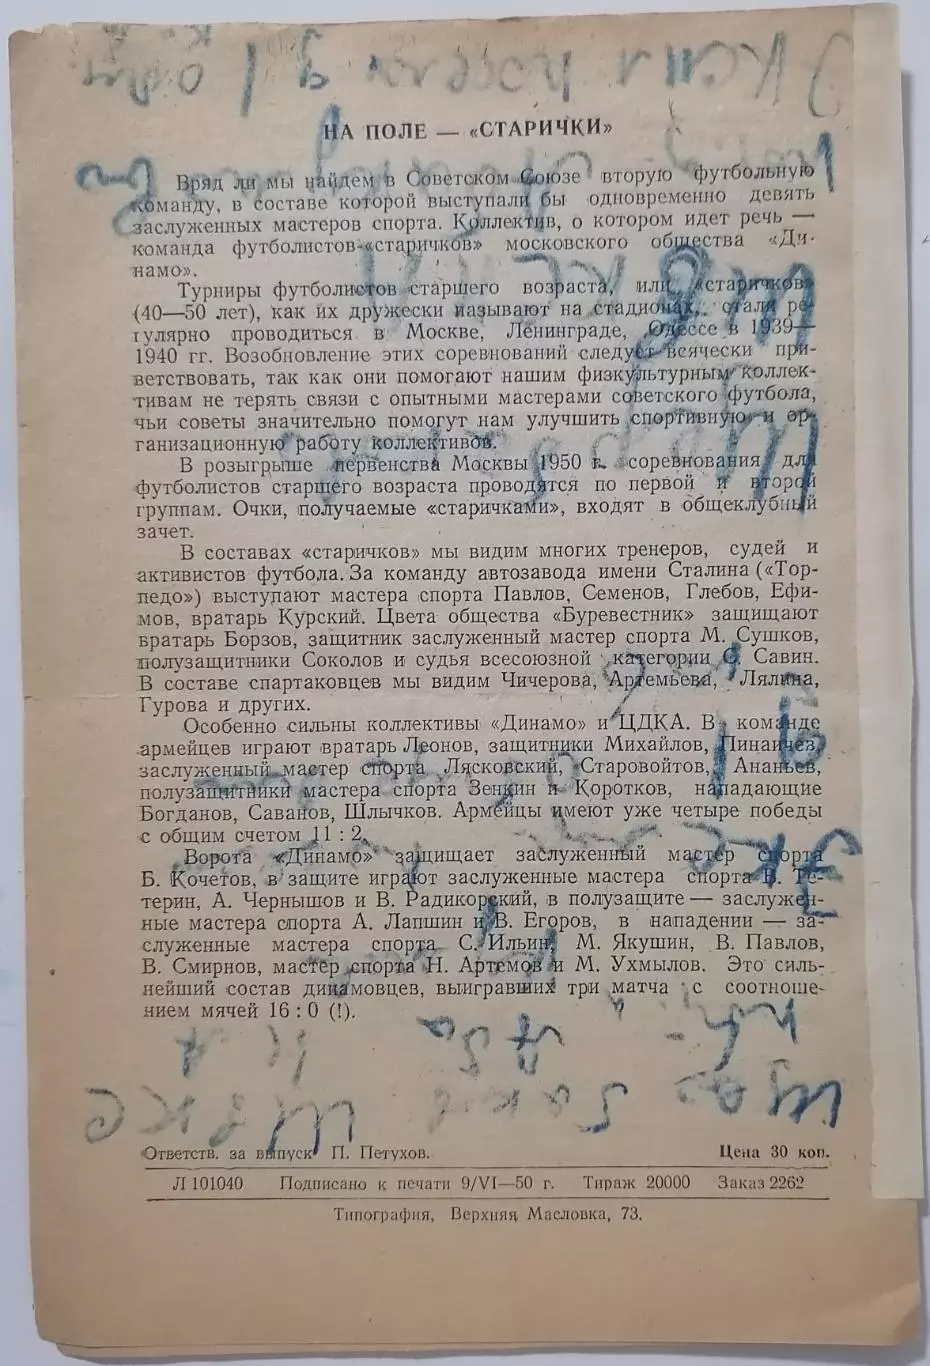 НА ПОЛЕ — «СТАРИЧКИ»
Вряд ли мы найдем в Советском Союзе вторую футбольную
команду, в составе которой выступали бы одновременно девять
заслуженных мастеров спорта. Коллектив, о котором идет речь —
команда футболистов-«старичков» московского общества «Ди-
намо».
Турниры футболистов старшего возраста, или «старичков»
(40—50 лет), как их дружески называют на стадионах, стали ре-
гулярно проводиться в Москве, Ленинграде, Одессе в 1939—
1940 гг. Возобновление этих соревнований следует всячески при-
ветствовать, так как они помогают нашим физкультурным коллек-
тивам не терять связи с опытными мастерами советского футбола,
чьи советы значительно помогут нам улучшить спортивную и ор-
ганизационную работу коллективов.
В розыгрыше первенства Москвы 1950 г. соревнования для
футболистов старшего возраста проводятся по первой и второй
группам. Очки, получаемые «старичками», входят в общеклубный
зачет.
В составах «старичков» мы видим многих тренеров, судей и
активистов футбола. За команду автозавода имени Сталина («Тор-
педо») выступают мастера спорта Павлов, Семенов, Глебов, Ефи-
мов, вратарь Курский. Цвета общества «Буревестник» защищают
вратарь Борзов, защитник заслуженный мастер спорта М. Сушков,
полузащитники Соколов и судья всесоюзной категории С. Савин.
В составе спартаковцев мы видим Чичерова, Артемьева, Лялина,
Гурова и других.
Особенно сильны коллективы «Динамо» и ЦДКА. В команде
армейцев играют вратарь Леонов, защитники Михайлов, Пинаичев,
заслуженный мастер спорта Лясковский, Старовойтов, Ананьев,
полузащитники мастера спорта Зенкин и Коротков, нападающие
Богданов, Саванов, Шлычков. Армейцы имеют уже четыре победы
с общим счетом 11 : 2.
Ворота «Динамо» защищает заслуженный мастер спорта
Б. Кочетов, в защите играют заслуженные мастера спорта В. Те-
терин, А. Чернышов и В. Радикорский, в полузащите — заслужен-
ные мастера спорта А. Лапшин и В. Егоров, в нападении — за-
служенные мастера спорта С. Ильин, М. Якушин, В. Павлов,
В. Смирнов, мастер спорта Н. Артемов и М. Ухмылов. Это силь-
нейший состав динамовцев, выигравших три матча с соотноше-
нием мячей 16 : 0 (!).
Ответств. за выпуск П. Петухов. Цена 30 коп.
Л 101040 Подписано к печати 9/VI—50 г. Тираж 20000 Заказ 2262
Типография, Верхняя Масловка, 73.